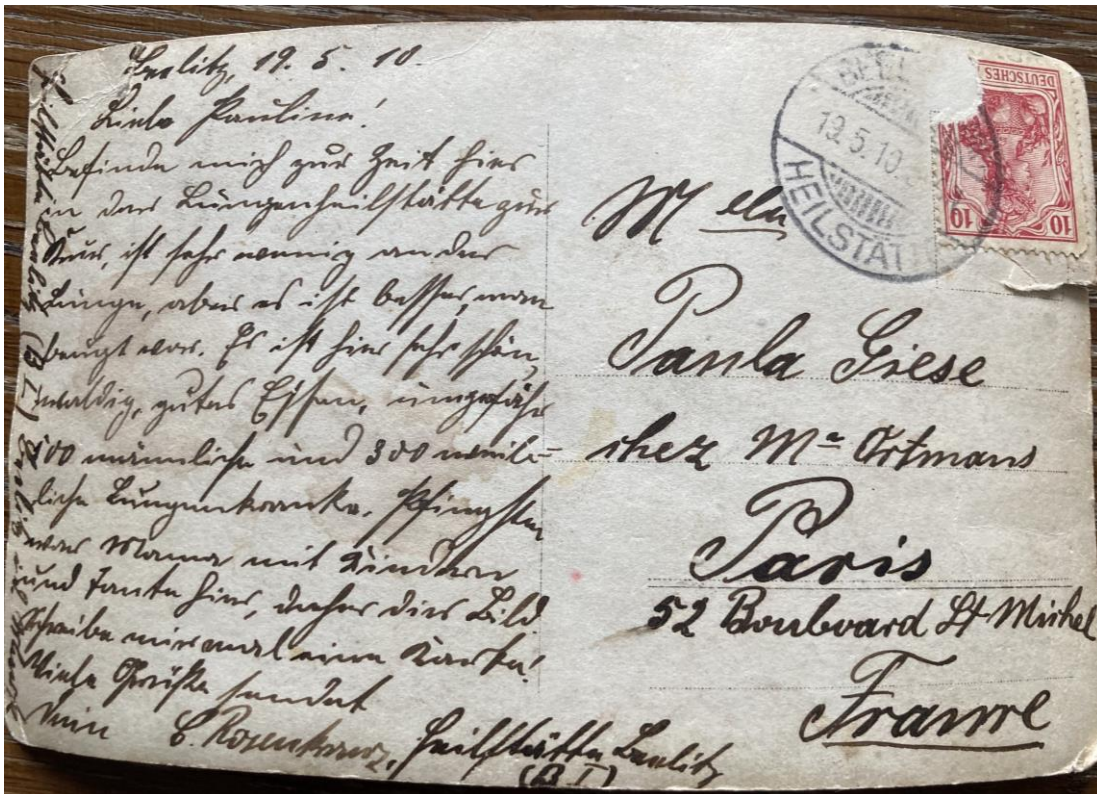 Beelitz, 19. 5. 10.
Liebe Pauline!
Befinde mich zur Zeit hier
in der Lungenheilstätte zur
Kur, ist sehr wenig an der
Lunge, aber es ist besser, man
beugt vor. Es ist hier sehr schön,
waldig, gutes Essen, ungefähr
500 männliche und 300 weib-
liche Lungenkranke. Pfingsten
war Mama mit Kindern
und Tante hier, daher dies Bild
Schreibe mir mal eine Karte!
Viele Grüße sendet
Dein E. Rosenkranz, Heilstätte Beelitz
(B I)
Heilstätte Beelitz (B I)
Mlle
Paula Giese
chez Me Ortmans
Paris
52 Boulevard St Michel
France
19.5.10
HEILSTÄT
DEUTSCHES
10 10